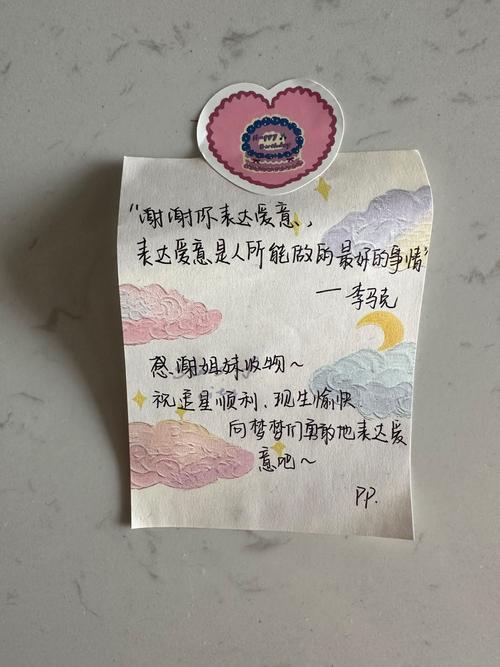 Happy
Birthday
"谢谢你表达爱意,
表达爱意是人所能做的最好的事情"
一李马克
感谢姐妹收物~
祝追星顺利、现生愉快.
向梦梦们勇敢地表达爱
意吧~
PP.